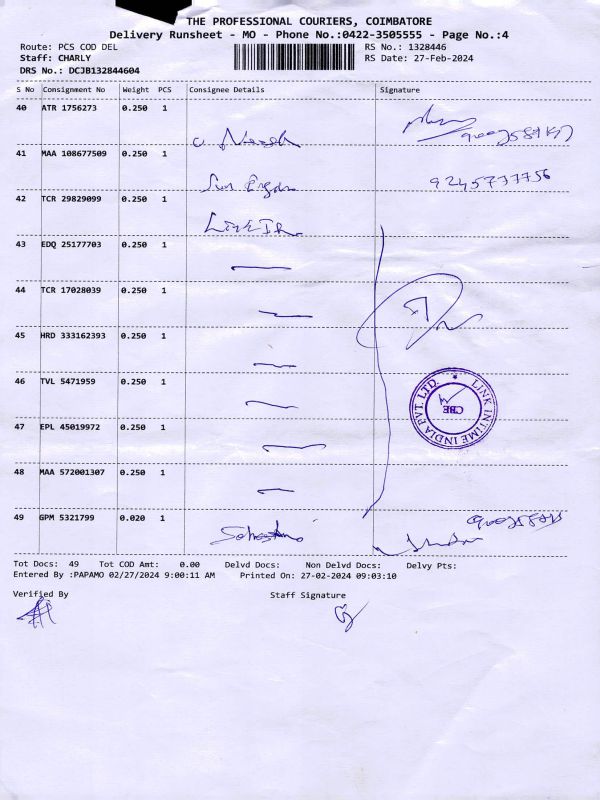 THE PROFESSIONAL COURIERS, COIMBATORE
Delivery Runsheet - MO - Phone No.:0422-3505555 - Page No.:4
Route: PCS COD DEL
RS No.: 1328446
Staff: CHARLY
RS Date: 27-Feb-2024
DRS No.: DCJB132844604
S No Consignment No Weight PCS Consignee Details Signature
40 ATR 1756273 0.250 1
41 MAA 108677509 0.250 1
9245777756
42 TCR 29829099 0.250 1
43 EDQ 25177703 0.250 1
44 TCR 17028039 0.250 1
45 HRD 333162393 0.250 1
46 TVL 5471959 0.250 1
LINK INTIME INDIA PVT. LTD.
CBE
47 EPL 45019972 0.250 1
48 MAA 572001307 0.250 1
49 GPM 5321799 0.020 1
Tot Docs: 49 Tot COD Amt: 0.00 Delvd Docs: Non Delvd Docs: Delvy Pts:
Entered By :PAPAMO 02/27/2024 9:00:11 AM Printed On: 27-02-2024 09:03:10
Verified By Staff Signature